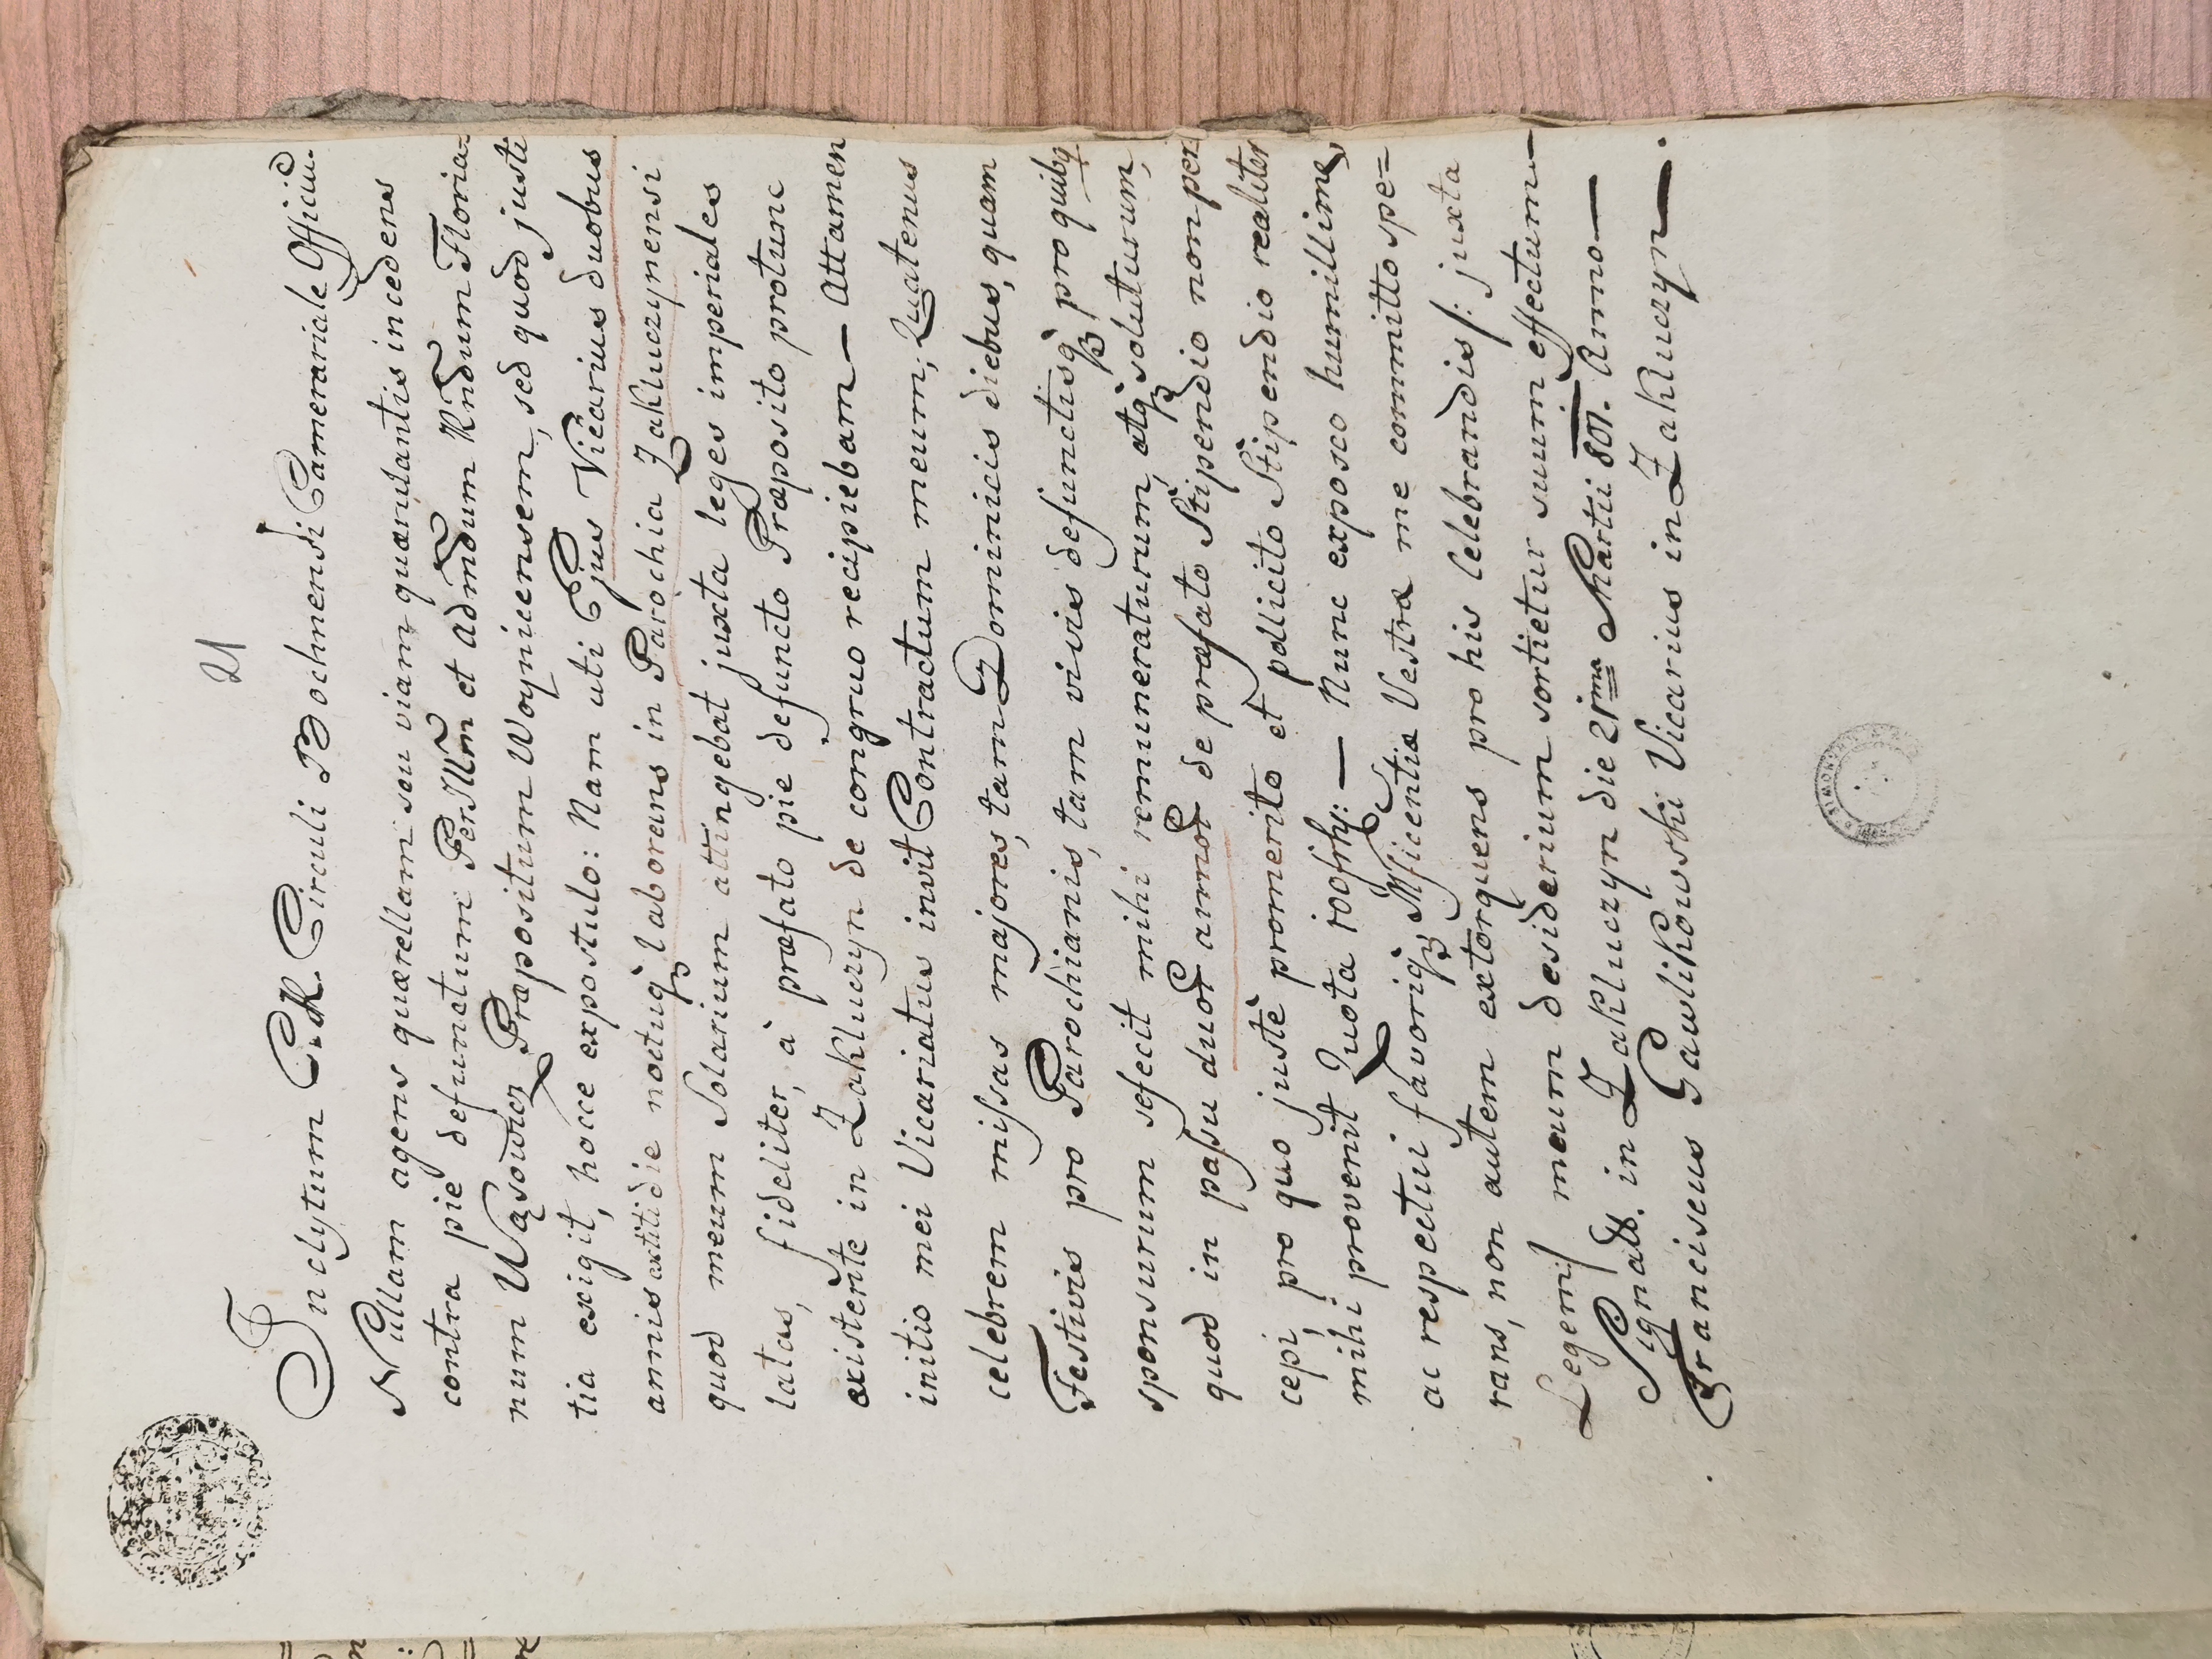 21
Inclytum C. R. Circuli Bochnensi Camerariale Officiu.
Nullam agens quærellam seu viam quærulantis incedens
contra pie defunctum PerIllm et admdum Rndum Floria=
num Wąsowicz Præpositum Woyniceensem, sed quod justi
tia exigit, hocce expostulo: Nam uti Ejus Vicarius duobus
annis extiti die noctuq laborans in Parochia Zakluczynensi
quod meum Solarium attingebat juxta leges imperiales
latas, fideliter, à præfato pie defuncto Præposito protunc
existente in Zakluczyn de congruo recipiebam — Attamen
initio mei Vicariatus inivit Contractum meum; Quatenus
celebrem missas majores, tam Dominicis diebus, quam
Festivis pro Parochianis, tam vivis defunctisq pro quibq
sponsurum sefecit mihi remuneraturum, atq soluturum,
quod in passu duor annor de præfato Stipendio non per
cepi, pro quo justè promerito et pollicito Stipendio realiter
mihi provenit Quota 100 — Nunc exposco humillime,
ac respectui favoriq Mficentiæ Vestræ me committo spe=
rans, non autem extorquens pro his Celebrandis /: juxta
Legem :/ meum desiderium sortietur suum effectum —
Signatt. in Zakluczyn die 21ma Martii 801. Anno —
Franciscus Gawlikowski Vicarius in Zakluczyn — .